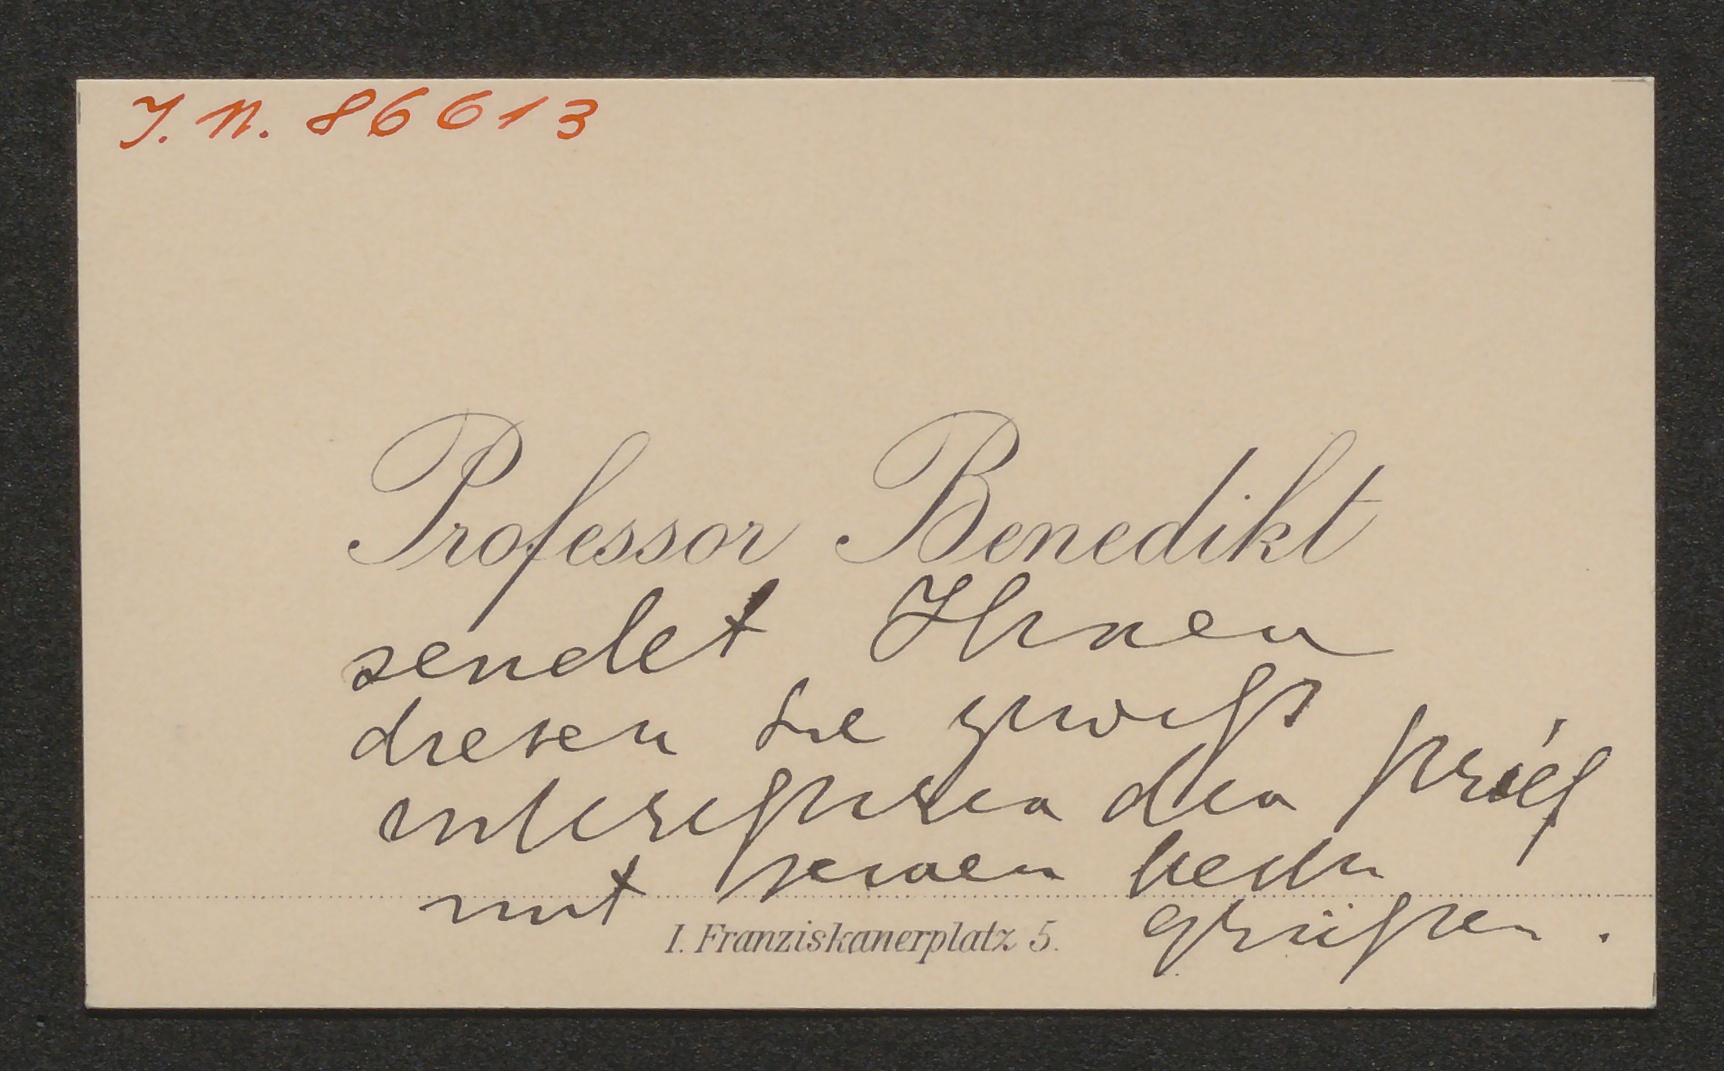 J. N. 86613
Professor Benedikt
sendet Ihnen
diesen Sie gewiß
interessirenden Brief
mit seinen besten
I. Franziskanerplatz 5.
Grüßen.